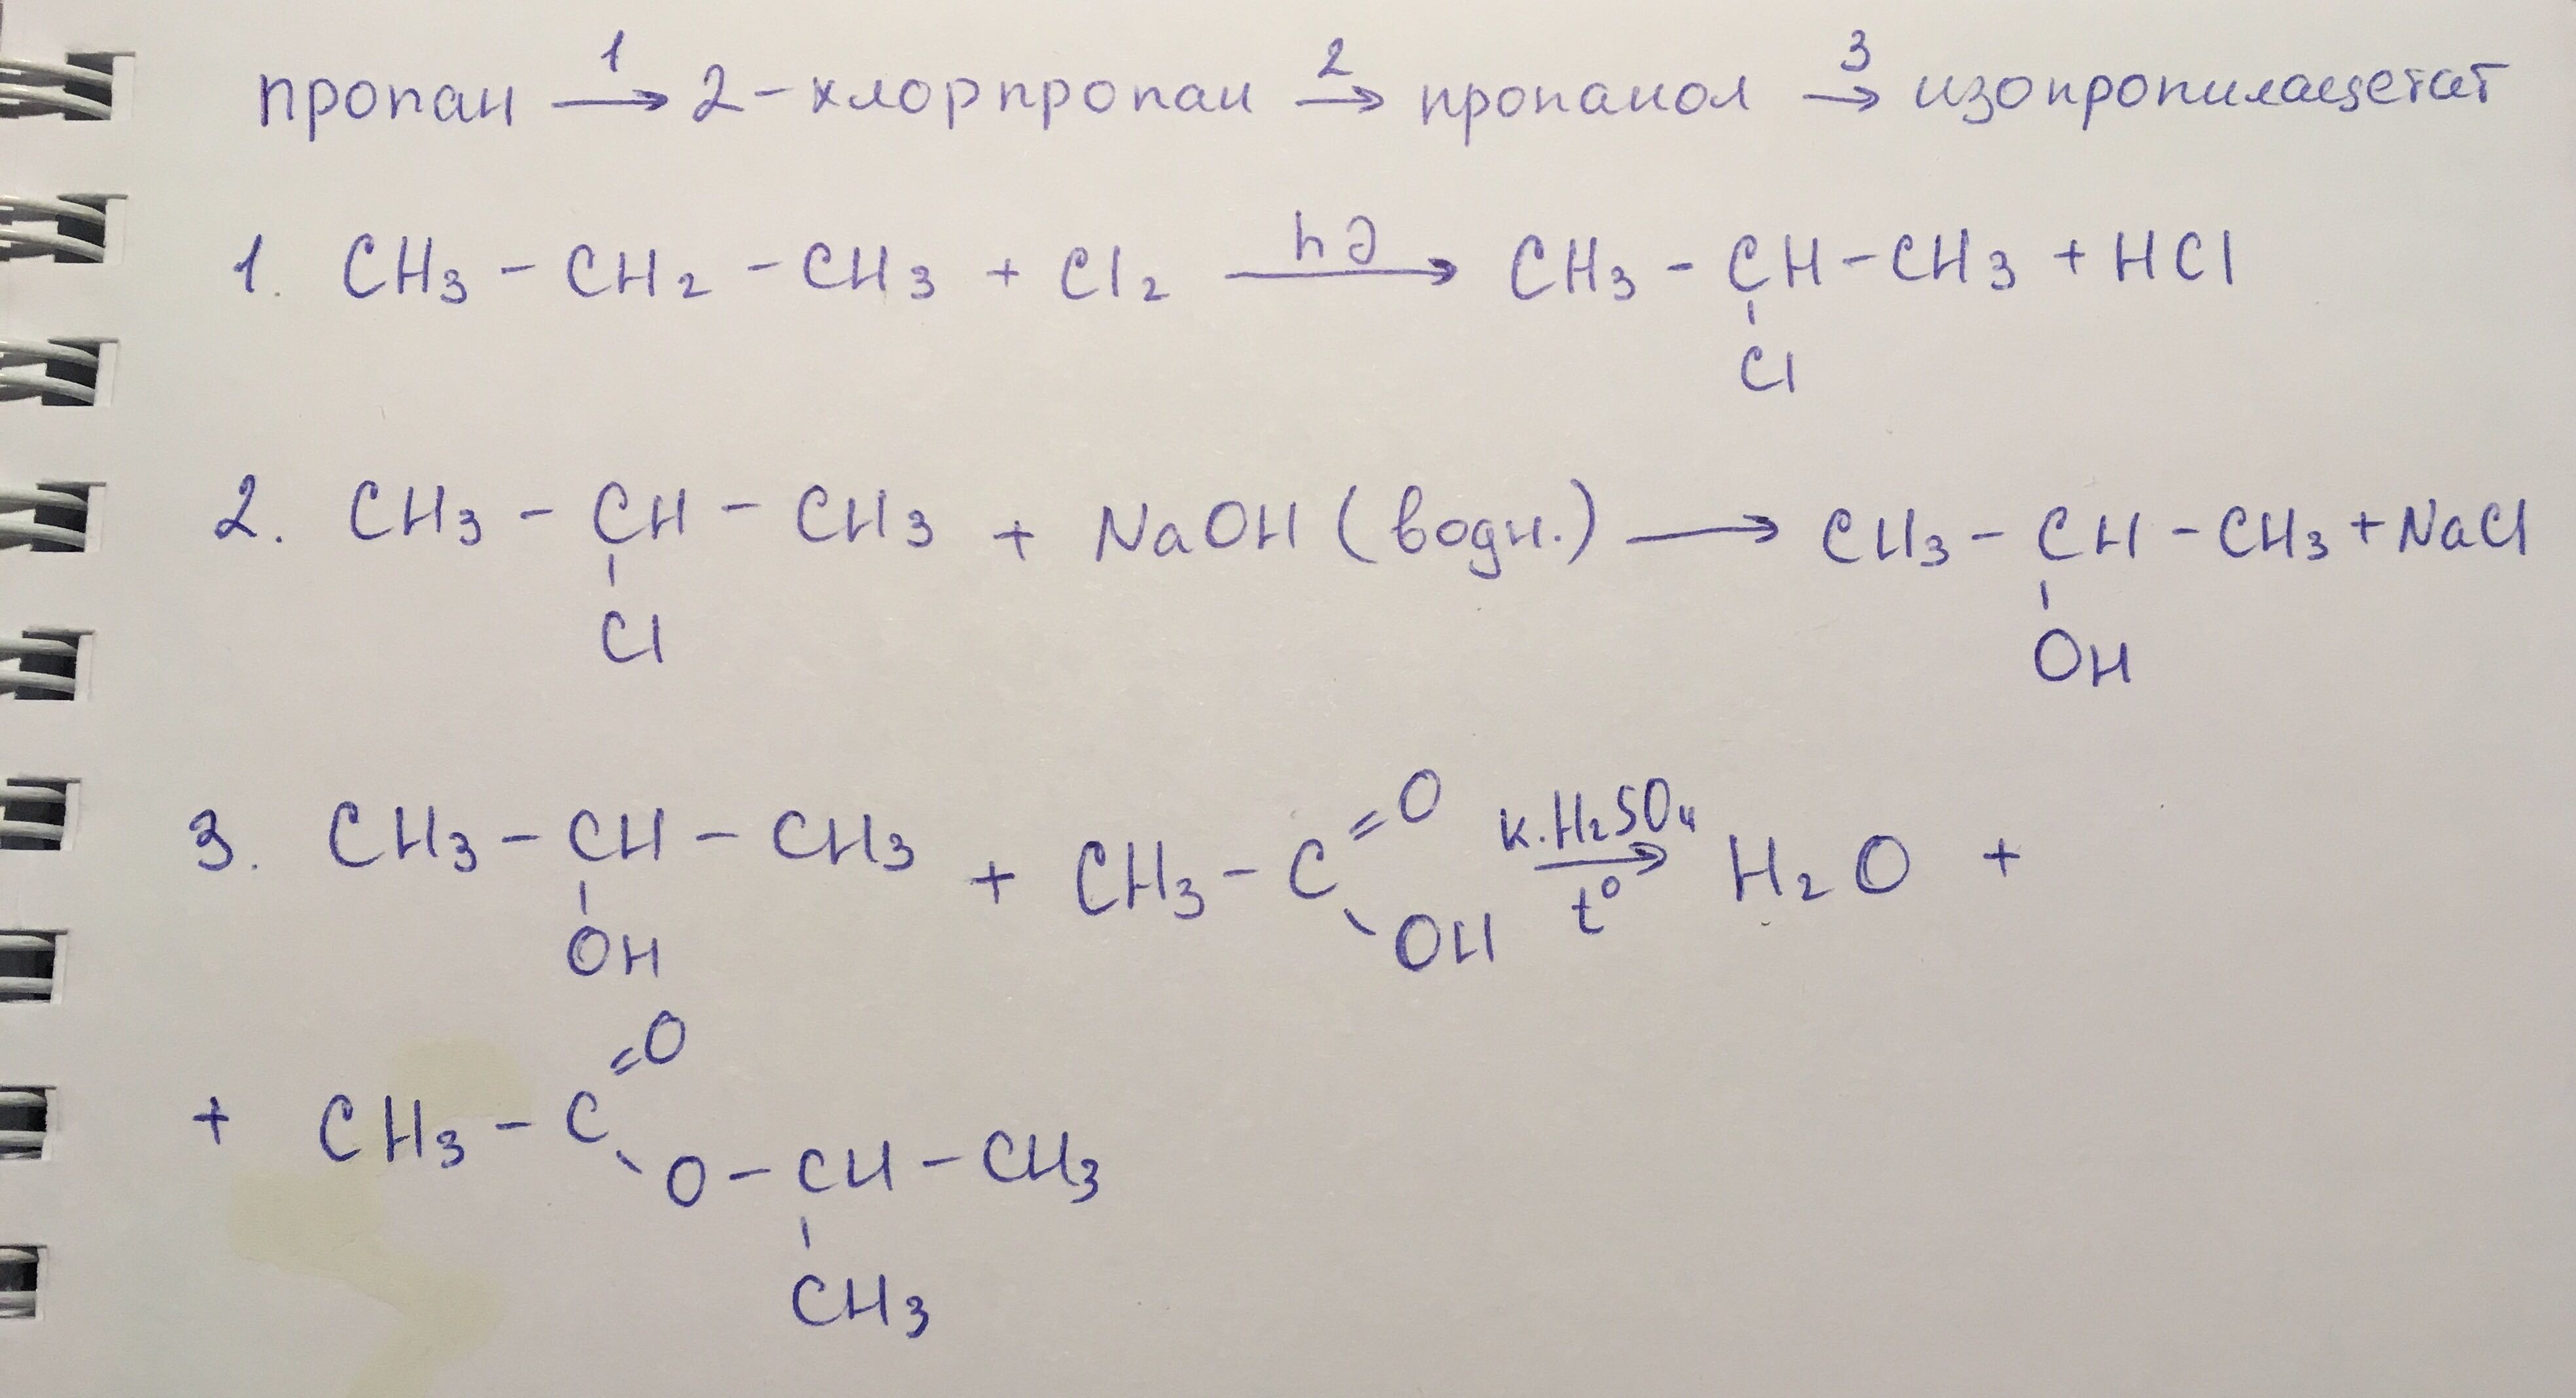 пропан 1→ 2-хлорпропан 2→ пропанол 3→ изопропилацетат
1. CH3 - CH2 - CH3 + Cl2 hν→ CH3 - CH - CH3 + HCl
Cl
2. CH3 - CH - CH3 + NaOH (водн.) → CH3 - CH - CH3 + NaCl
Cl
OH
3. CH3 - CH - CH3 + CH3 - C =O - OH к. H2SO4→ t° H2O +
OH
+ CH3 - C =O - O - CH - CH3
CH3